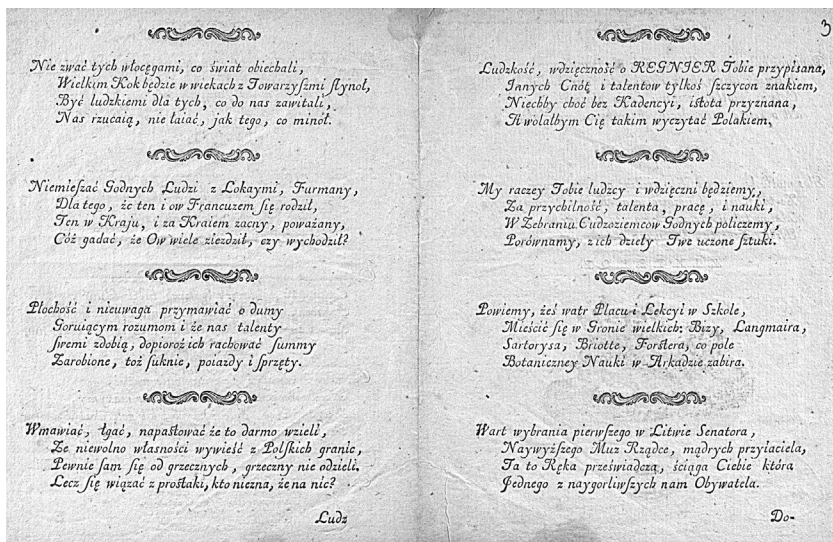 Nie zwać tych włocęgami, co świat obiechali,
Wielkim Kok będzie w wiekach z Towarzyſzmi ſłynoł,
Być ludzkiemi dla tych, co do nas zawitali,
Nas rzucaią, nie łaiać, jak tego, co minoł.
Niemieſzać Godnych Ludzi z Lokaymi, Furmany,
Dla tego, że ten i ow Francuzem ſię rodził,
Ten w Kraju, i za Kraiem zacny, poważany,
Cóż gadać, że Ow wiele ziezdził, czy wychodził?
Płochość i nieuwaga przymawiać o dumy
Goruiącym rozumom i że nas talenty
ſwemi zdobią, dopioroż ich rachować ſummy
Zarobione, toż ſuknie, poiazdy i ſprzęty.
Wmawiać, łgać, napaſtować że to darmo wzieli,
Ze niewolno własności wywieść z Polſkich granic,
Pewnie ſam ſię od grzecznych, grzeczny nie odzieli.
Lecz ſię wiązać z proſtaki, kto niezna, że na nic?
Ludz
3
Ludzkość, wdzięczność o REGNIER Tobie przypisana,
Innych Cnót, i talentow tylkoś ſzczycon znakiem,
Niechby choć bez Kadencyi, iſtota przyznana,
A wolałbym Cię takim wyczytać Polakiem,
My raczey Tobie ludzcy i wdzięczni będziemy,
Za przychilność, talenta, pracę, i nauki,
W Zebraniu Cudzoziemcow Godnych policzemy,
Porównamy, z ich dzieły Twe uczone ſztuki.
Powiemy, żeś watr Placu i Lekcyi w Szkole,
Mieścić ſię w Gronie wielkich: Bizy, Langmaira,
Sartorysa, Briotte, Forſtera, co pole
Botaniczney Nauki w Arkadzie zabira.
Wart wybrania pierwſzego w Litwie Senatora,
Naywyżſzego Muz Rządce, mądrych przyiaciela,
Ta to Ręka przeświadcza, ściąga Ciebie która
Jednego z naygorliwſzych nam Obywatela.
Do-